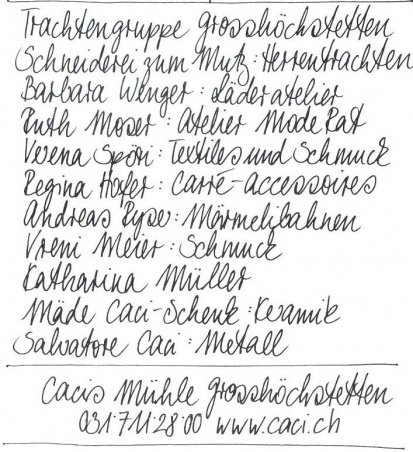 Trachtengruppe Grosshöchstetten
Schneiderei zum Mutz: Herrentrachten
Barbara Wenger: Läderatelier
Ruth Moser: Atelier Mode Rat
Verena Spöri: Textiles und Schmuck
Regina Hofer: Carré-Accessoires
Andreas Ryse: Märmelibahnen
Vreni Meier: Schmuck
Katharina Müller
Mäde Caci-Schenk: Keramik
Salvatore Caci: Metall
Cacis Mühle Grosshöchstetten
031 711 28 00 www.caci.ch